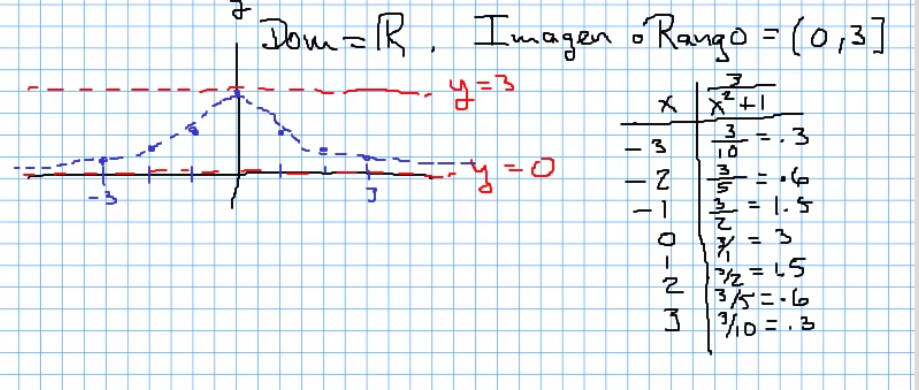 y
Dom = ℝ, Imagen o Rango = (0,3]
y = 3
x | 3/(x²+1)
-3 | 3/10 = .3
-2 | 3/5 = .6
-1 | 3/2 = 1.5
0 | 3/1 = 3
1 | 3/2 = 1.5
2 | 3/5 = .6
3 | 3/10 = .3
y = 0
-3 3